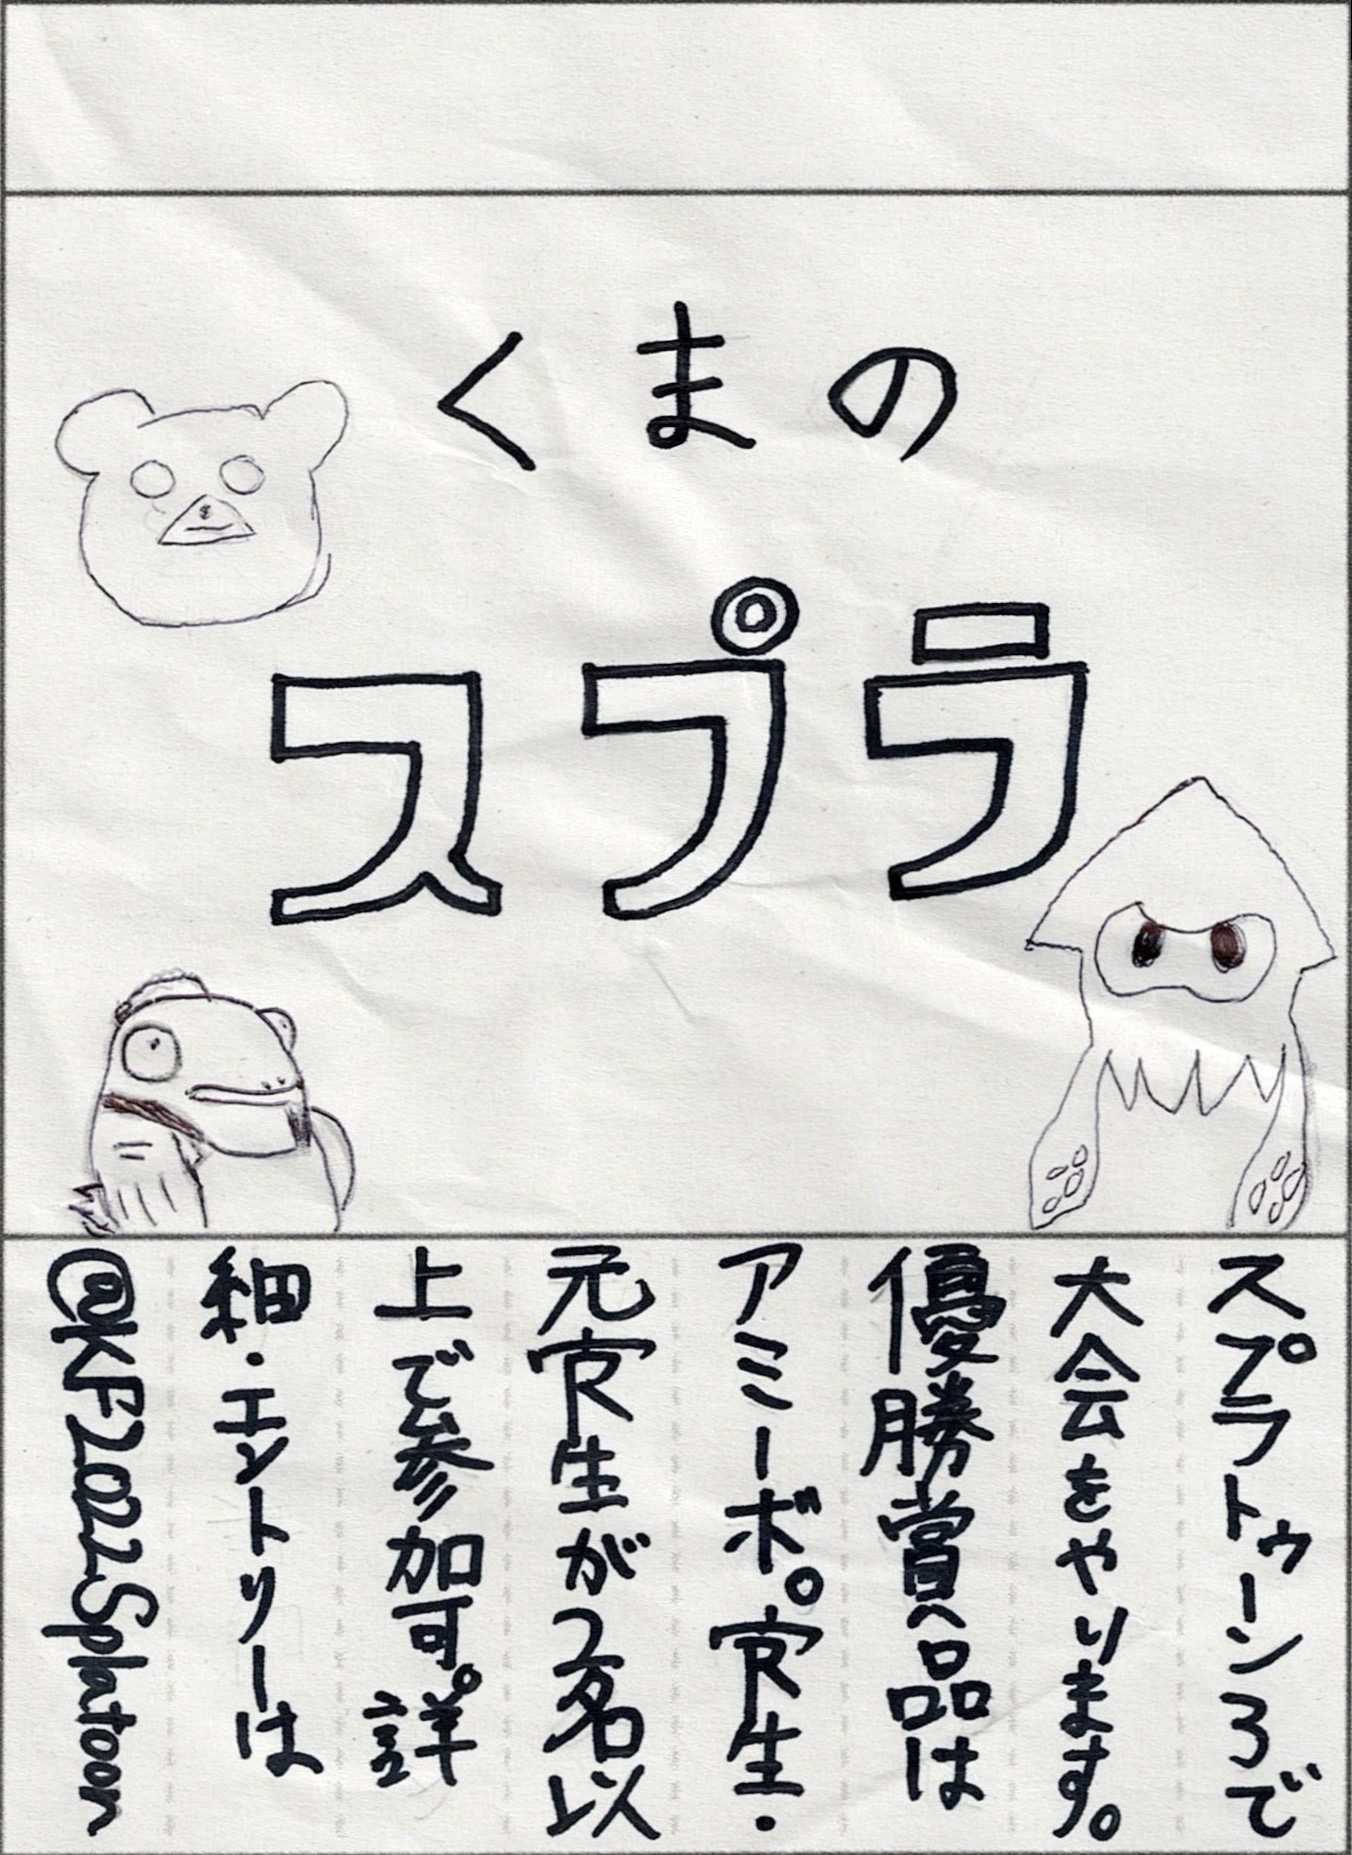 くまの
スプラ
スプラトゥーン3で
大会をやります。
優勝賞品は
アミーボ。寮生・
元寮生が2名以
上で参加可。詳
細・エントリーは
@KF2022Splatoon